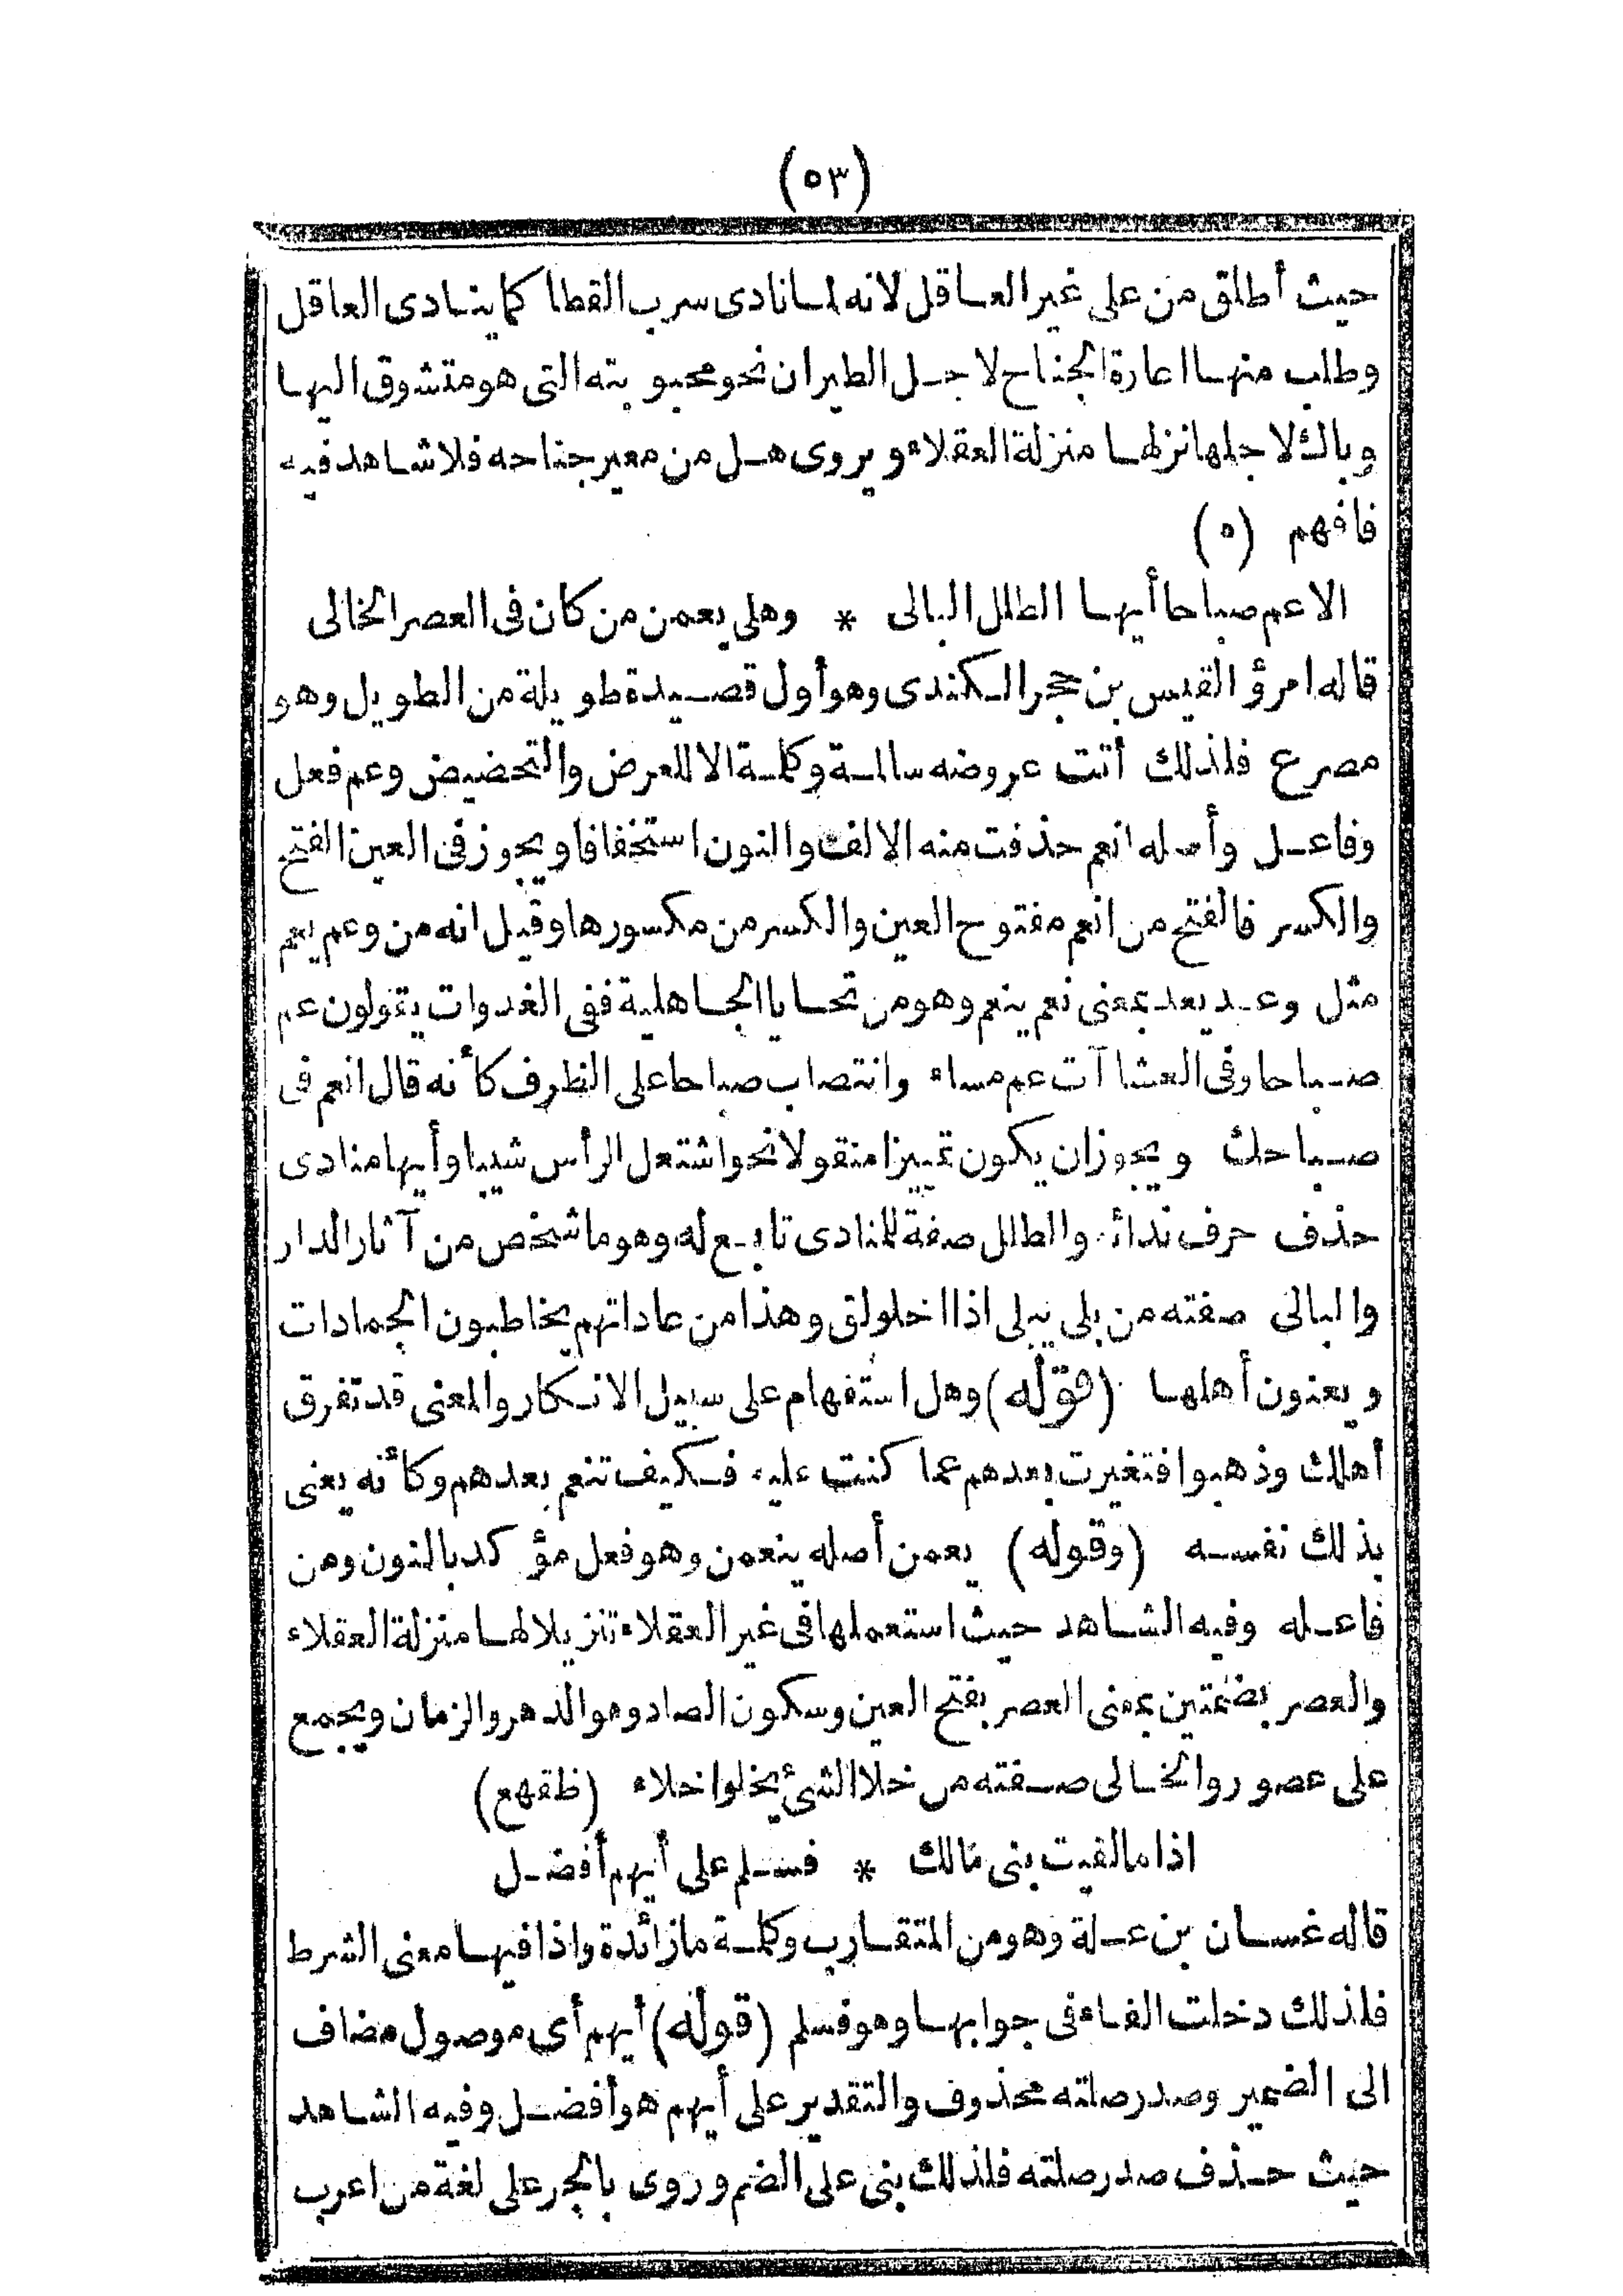 (٥٣)
حيث أطلق من على غير العاقل لانه لما نادى سرب القطا كما ينادى العاقل
وطلب منها اعارة الجناح لاجل الطيران نحو محبوبته التى هو متشوق اليها
وباك لاجلها نزلها منزلة العقلاء ويروى هل من معير جناحه فلا شاهد فيه
فافهم (ه)
الا عم صباحا أيها الطلل البالى * وهل يعمن من كان فى العصر الخالى
قاله امرؤ القيس بن حجر الكندى وهو أول قصيدة طويلة من الطويل وهو
مصرع فلذلك أتت عروضه سالمة وكلمة الا للعرض والتحضيض وعم فعل
وفاعل وأصله انعم حذفت منه الالف والنون استخفافا ويجوز فى العين الفتح
والكسر فالفتح من انعم مفتوح العين والكسر من مكسورها وقيل انه من وعم يعم
مثل وعد يعد بمعنى نعم ينعم وهو من تحايا الجاهلية ففى الغدوات يقولون عم
صباحا وفى العشاآت عم مساء وانتصاب صباحا على الظرف كأنه قال انعم فى
صباحك ويجوز ان يكون تمييزا منقولا نحو اشتعل الرأس شيبا وأيها منادى
حذف حرف ندائه والطلل صفة للمنادى تابع له وهو ما شخص من آثار الدار
والبالى صفته من بلى يبلى اذا اخلولق وهذا من عاداتهم يخاطبون الجمادات
ويعنون أهلها (قوله) وهل استفهام على سبيل الانكار والمعنى قد تفرق
أهلك وذهبوا فتغيرت بعدهم عما كنت عليه فكيف تنعم بعدهم وكأنه يعنى
بذلك نفسه (وقوله) يعمن أصله ينعمن وهو فعل مؤكد بالنون ومن
فاعله وفيه الشاهد حيث استعملها فى غير العقلاء تنزيلا لها منزلة العقلاء
والعصر بضمتين بمعنى العصر بفتح العين وسكون الصاد وهو الدهر والزمان ويجمع
على عصور والخالى صفته من خلا الشئ يخلوا خلاء (ظقهع)
اذا ما لقيت بنى مالك * فسلم على أيهم أفضل
قاله غسان بن علة وهو من المتقارب وكلمة ما زائدة واذا فيها معنى الشرط
فلذلك دخلت الفاء فى جوابها وهو فسلم (قوله) أيهم أى موصول مضاف
الى الضمير وصدر صلته محذوف والتقدير على أيهم هو أفضل وفيه الشاهد
حيث حذف صدر صلته فلذلك بنى على الضم وروى بالجر على لغة من اعرب